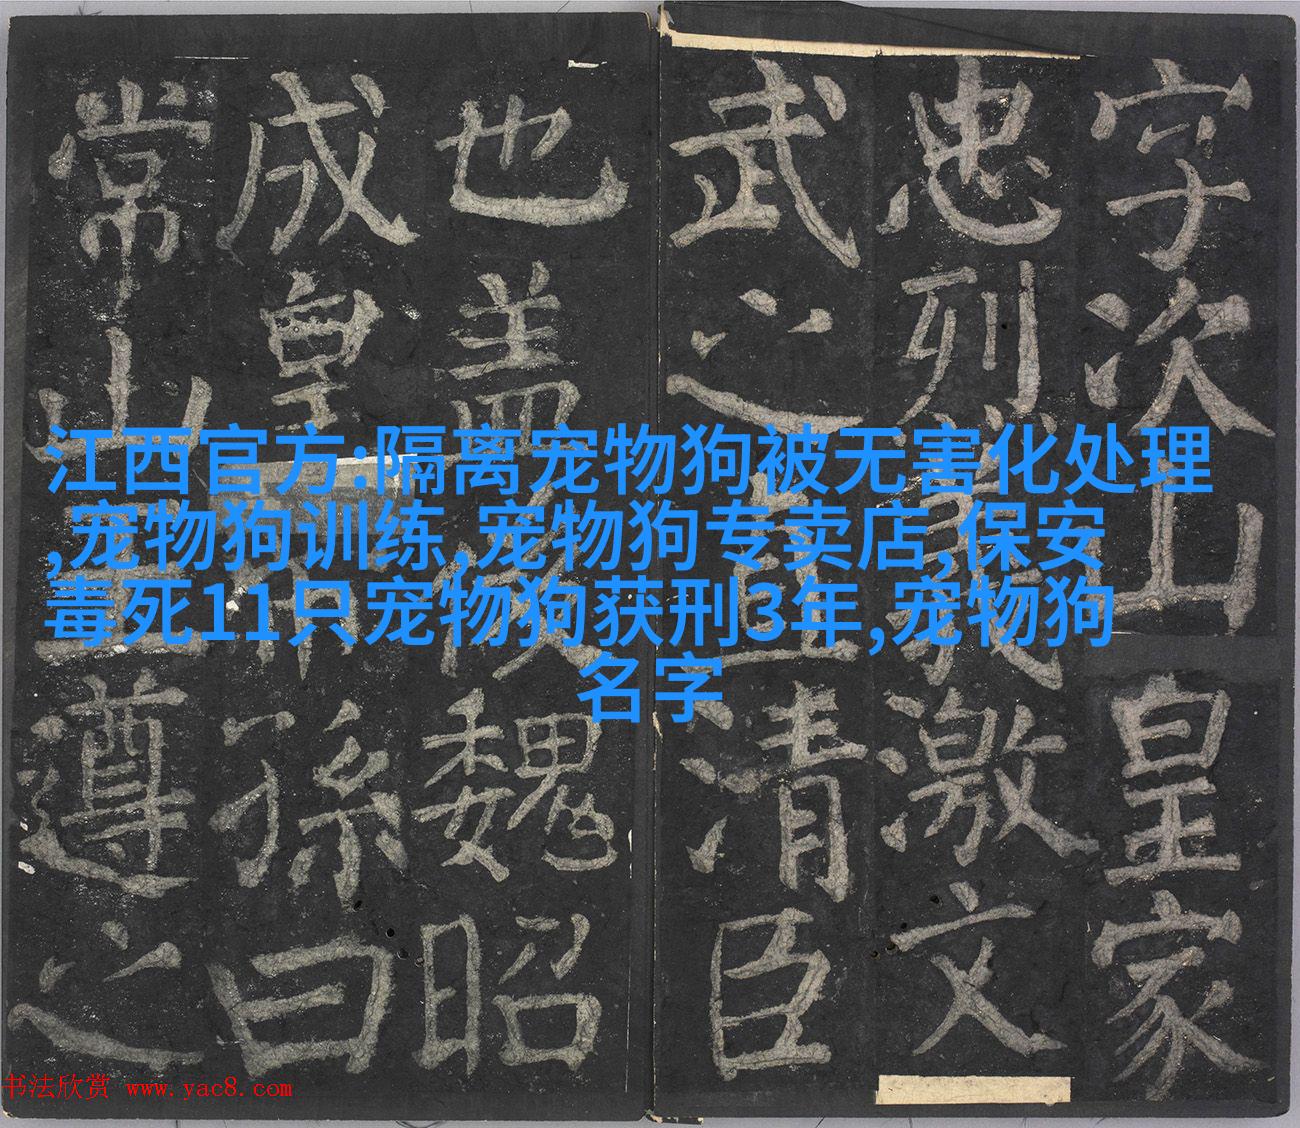 字次山皇家
忠烈義激文
武之直清臣
也盖後魏昭
成皇帝孫曰
常山王遵之
江西官方:隔离宠物狗被无害化处理
,宠物狗训练,宠物狗专卖店,保安
毒死11只宠物狗获刑3年,宠物狗
名字
书法欣赏 www.yac8.com